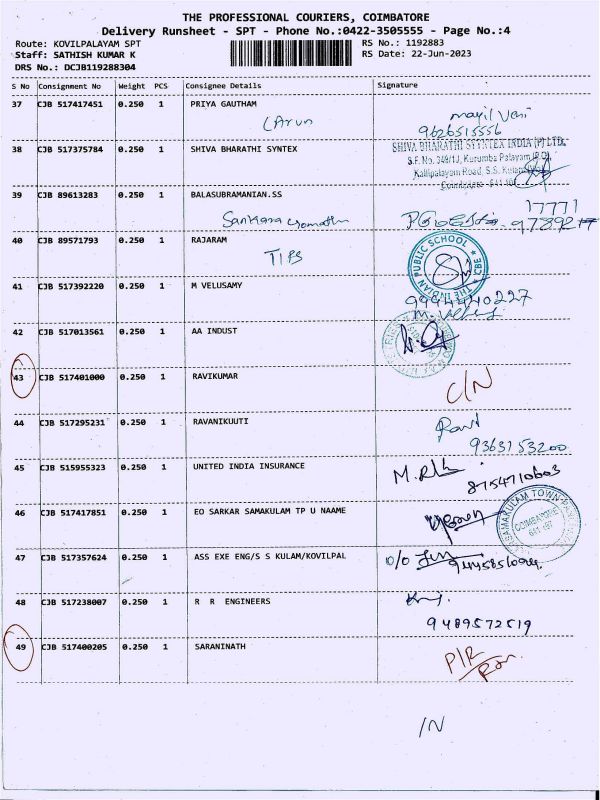 THE PROFESSIONAL COURIERS, COIMBATORE
Delivery Runsheet - SPT - Phone No.:0422-3505555 - Page No.:4
Route: KOVILPALAYAM SPT RS No.: 1192883
Staff: SATHISH KUMAR K RS Date: 22-Jun-2023
DRS No.: DCJB119288304
S No Consignment No Weight PCS Consignee Details Signature
37 CJB 517417451 0.250 1 PRIYA GAUTHAM
(Arun
9626515556
38 CJB 517375784 0.250 1 SHIVA BHARATHI SYNTEX
SHIVA BHARATHI SYNTEX INDIA (P) LTD.
S.F. No. 349/1J, Kurumba Palayam (P.O),
Kallipalayam Road, S.S. Kulam
Coimbatore - 641 107
39 CJB 89613283 0.250 1 BALASUBRAMANIAN.SS
17771
Sankara
40 CJB 89571793 0.250 1 RAJARAM
TIPS
THE INDIAN PUBLIC SCHOOL ★ CBE ★
41 CJB 517392220 0.250 1 M VELUSAMY
9944440227
42 CJB 517013561 0.250 1 AA INDUST
43 CJB 517401000 0.250 1 RAVIKUMAR
C/N
44 CJB 517295231 0.250 1 RAVANIKUUTI
9363153200
45 CJB 515955323 0.250 1 UNITED INDIA INSURANCE
8754710603
46 CJB 517417851 0.250 1 EO SARKAR SAMAKULAM TP U NAAME
COIMBATORE
641 107
47 CJB 517357624 0.250 1 ASS EXE ENG/S S KULAM/KOVILPAL
D/O
48 CJB 517238007 0.250 1 R R ENGINEERS
9489572519
49 CJB 517400205 0.250 1 SARANINATH
P/R
/N